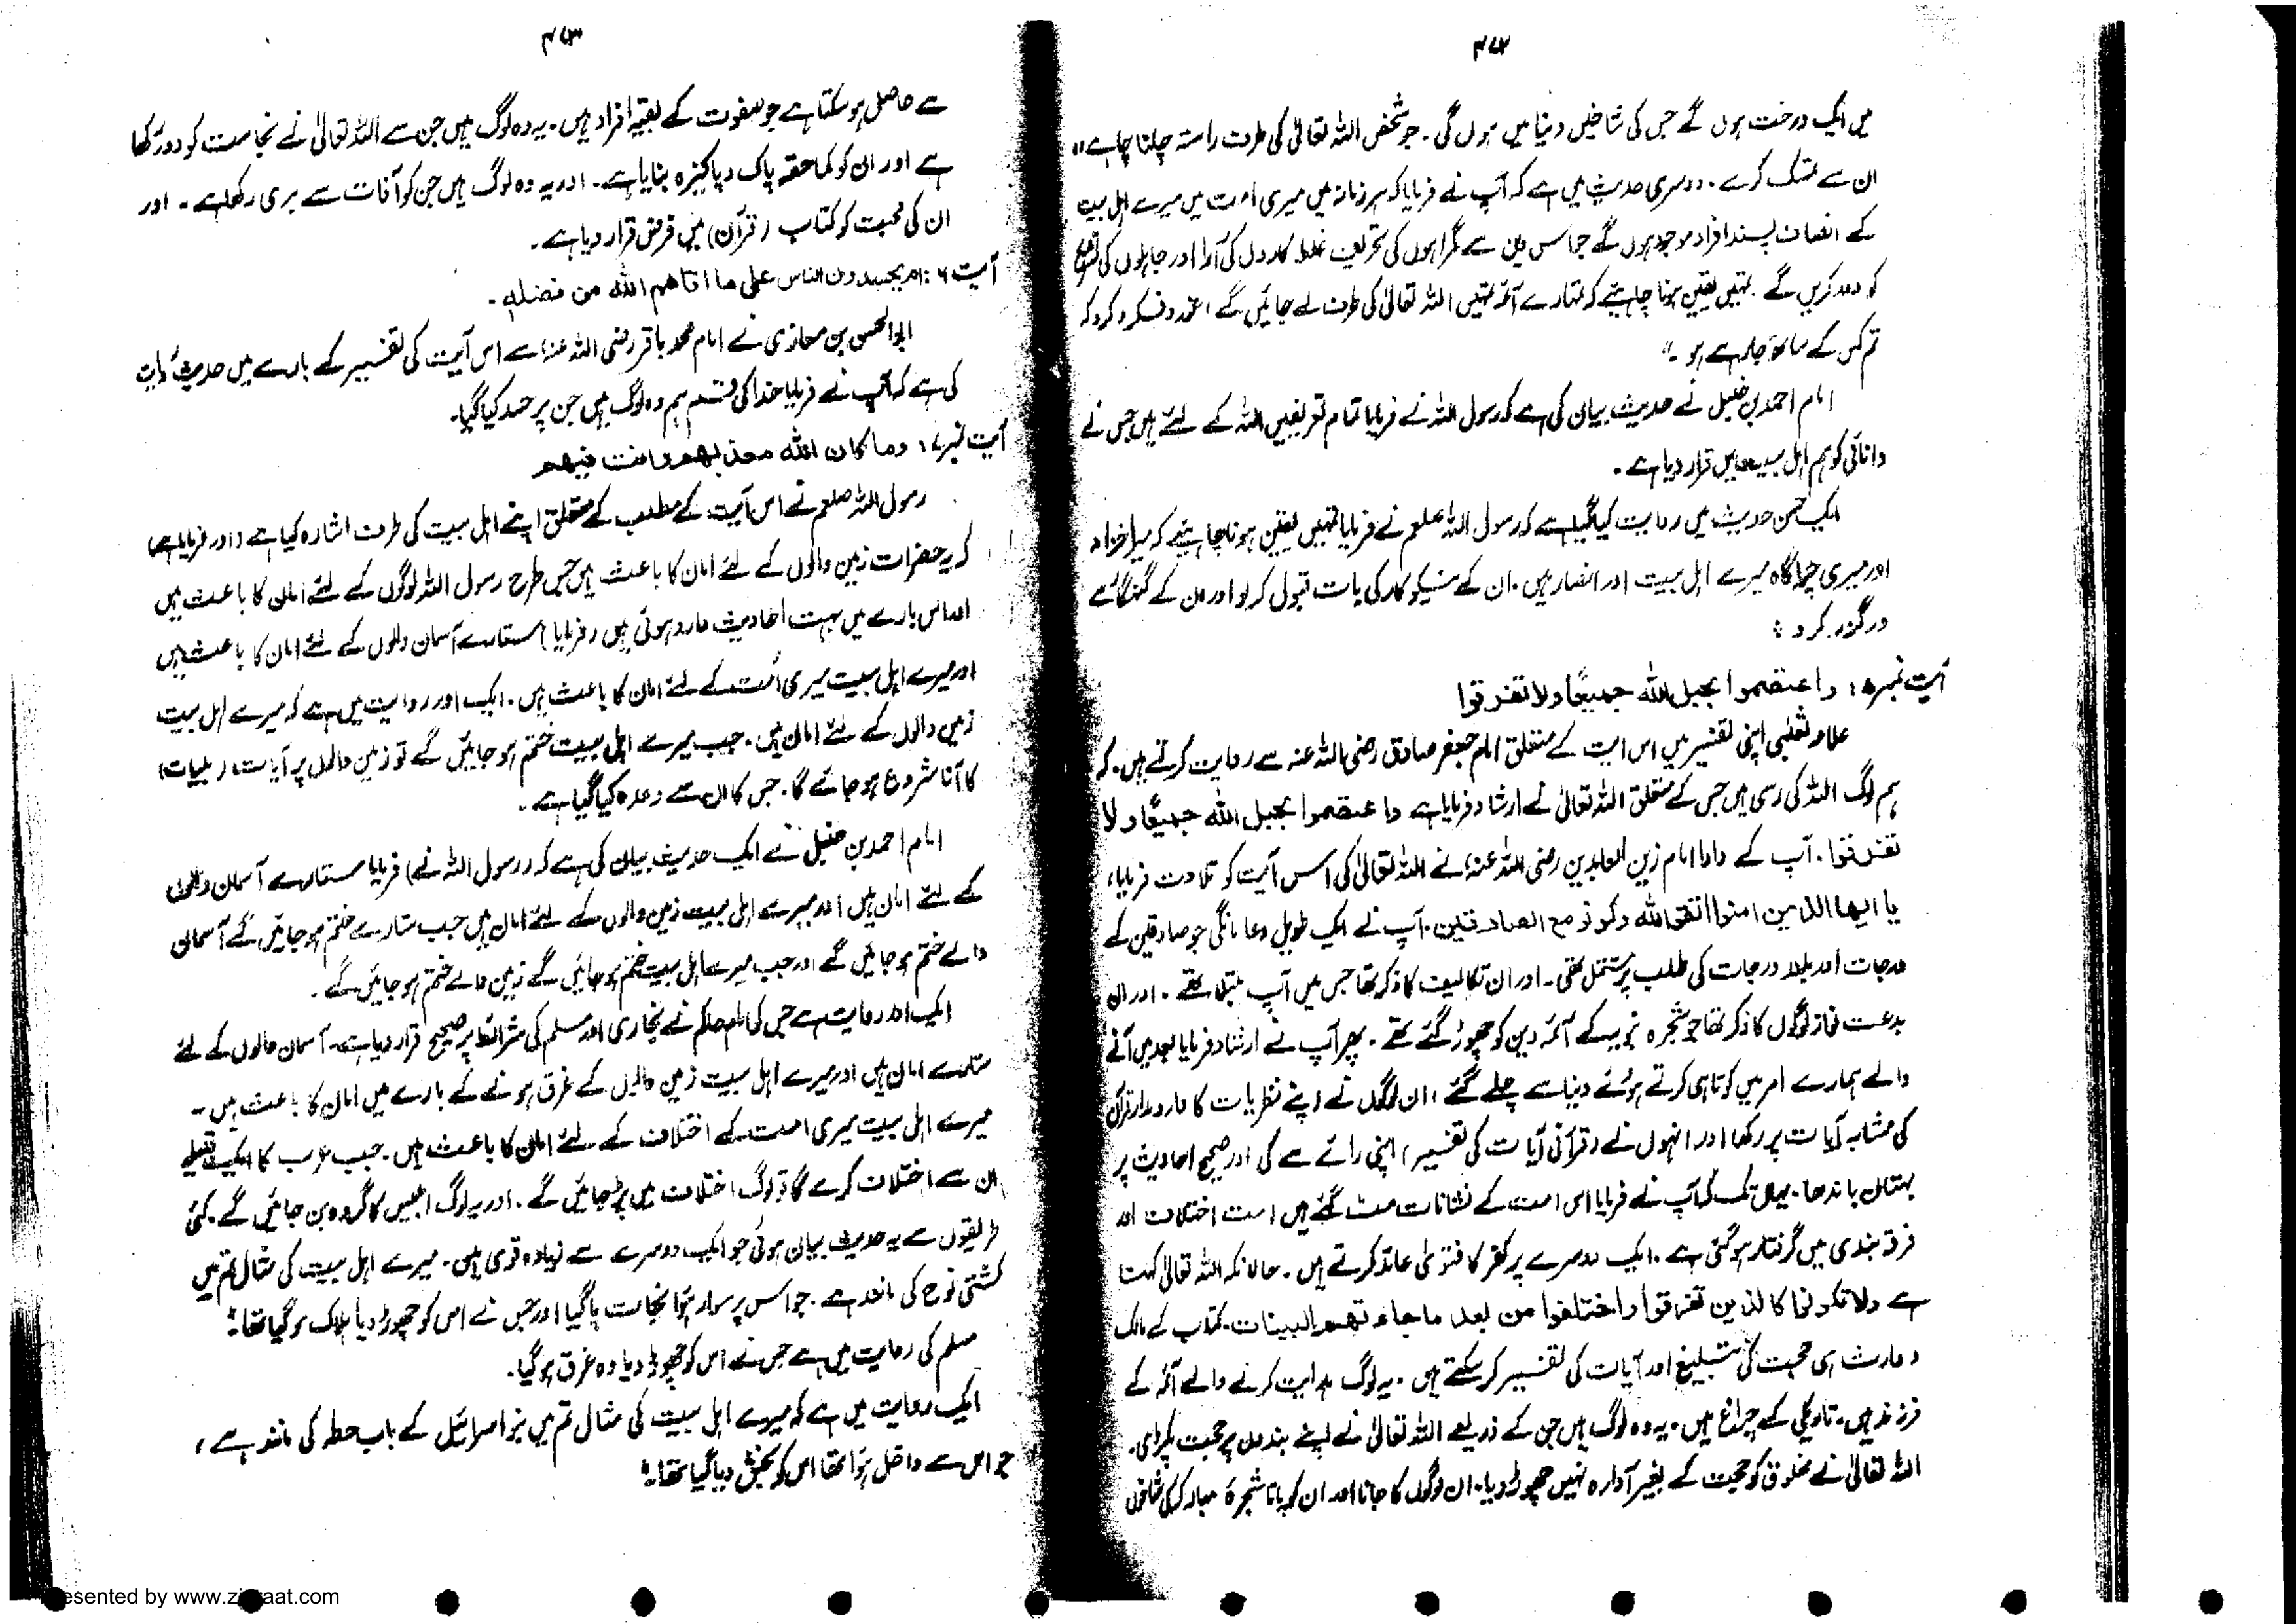 ۴۷۲
میں ایک درخت ہوں گے جس کی شاخیں دنیا میں ہوں گی۔ جو شخص اللہ تعالیٰ کی طرف راستہ چلنا چاہے"
ان سے تمسک کرے۔ دوسری حدیث میں ہے کہ آپ نے فرمایا کہ ہر زمانہ میں میری امت میں میرے اہل بیت
کے انصاف پسند افراد موجود ہوں گے جو اس دین سے گمراہوں کی تحریف غلط کاروں کی آرا اور جاہلوں کی
کو دور کریں گے۔ تمہیں یقین ہونا چاہیئے کہ تمہارے آئمہ تمہیں اللہ تعالیٰ کی طرف لے جائیں گے، غور و فکر کرو کہ
تم کس کے ساتھ جا رہے ہو۔"
امام احمد بن حنبل نے حدیث بیان کی ہے کہ رسول اللہ نے فرمایا تمام تعریفیں اللہ کے لئے ہیں جس نے
دانائی کو ہم اہل بیت میں قرار دیا ہے۔
ایک حسن حدیث میں روایت کیا گیا ہے کہ رسول اللہ صلعم نے فرمایا تمہیں یقین ہونا چاہیئے کہ میرا خزانہ
اور میری چراگاہ میرے اہل بیت اور انصار ہیں۔ ان کے نیکو کار کی بات قبول کر لو اور ان کے گنہگار سے
درگزر کرو :
آیت نمبر ۵: واعتصموا بحبل الله جمیعًا ولا تفرقوا
علامہ ثعلبی اپنی تفسیر میں اس آیت کے متعلق امام جعفر صادق رضی اللہ عنہ سے روایت کرتے ہیں۔ کہ
ہم لوگ اللہ کی رسی ہیں جس کے متعلق اللہ تعالیٰ نے ارشاد فرمایا ہے واعتصموا بحبل الله جمیعًا ولا
تفرقوا۔ آپ کے دادا امام زین العابدین رضی اللہ عنہ نے اللہ تعالیٰ کی اس آیت کو تلاوت فرمایا،
یا ایها الذین امنوا اتقوا الله وکونو مع الصادقین۔ آپ نے ایک طویل دعا مانگی جو صادقین کے
درجات اور بلند درجات کی طلب پر مشتمل تھی۔ اور ان تکالیف کا ذکر تھا جس میں آپ مبتلا تھے۔ اور ان
بدعت نواز لوگوں کا ذکر تھا جو شجرہ نبویہ کے آئمہ دین کو چھوڑ گئے تھے۔ پھر آپ نے ارشاد فرمایا بعد میں آنے
والے ہمارے امر میں کوتاہی کرتے ہوئے دنیا سے چلے گئے، ان لوگوں نے اپنے نظریات کا دار و مدار قرآن
کی مشابہ آیات پر رکھا اور انہوں نے (قرآنی آیات کی تفسیر) اپنی رائے سے کی اور صحیح احادیث پر
بہتان باندھا۔ یہاں تک کہ آپ نے فرمایا اس امت کے نشانات مٹ گئے ہیں امت اختلاف اور
فرقہ بندی میں گرفتار ہو گئی ہے۔ ایک دوسرے پر کفر کا فتویٰ عائد کرتے ہیں۔ حالانکہ اللہ تعالیٰ کہتا
ہے ولا تکونوا کالذین تفرقوا واختلفوا من بعد ما جاء تهم البینات۔ کتاب کے مالک
و وارث ہی حجت کی تبلیغ اور آیات کی تفسیر کر سکتے ہیں۔ یہ لوگ ہدایت کرنے والے آئمہ کے
فرزند ہیں۔ تاریکی کے چراغ ہیں۔ یہ وہ لوگ ہیں جن کے ذریعے اللہ تعالیٰ نے اپنے بندوں پر حجت پکڑی۔
اللہ تعالیٰ نے مخلوق کو حجت کے بغیر آوارہ نہیں چھوڑ دیا۔ ان لوگوں کا جاننا اور ان کو پانا شجرۂ مبارکہ کی شاخوں
۴۷۳
سے حاصل ہو سکتا ہے جو صفوت کے بقیہ افراد ہیں۔ یہ وہ لوگ ہیں جن سے اللہ تعالیٰ نے نجاست کو دور رکھا
ہے اور ان کو کما حقہ پاک و پاکیزہ بنایا ہے۔ اور یہ وہ لوگ ہیں جن کو آفات سے بری رکھا ہے۔ اور
ان کی محبت کو کتاب (قرآن) میں فرض قرار دیا ہے۔
آیت ۶: ام یحسدون الناس علی ما اتاهم الله من فضله۔
ابوالحسن بن مغازی نے امام محمد باقر رضی اللہ عنہ سے اس آیت کی تفسیر کے بارے میں حدیث روایت
کی ہے کہ آپ نے فرمایا خدا کی قسم ہم وہ لوگ ہیں جن پر حسد کیا گیا۔
آیت نمبر ۷: وما کان الله معذبهم وانت فیهم
رسول اللہ صلعم نے اس آیت کے مطلب کے متعلق اپنے اہل بیت کی طرف اشارہ کیا ہے (اور فرمایا ہے)
کہ یہ حضرات زمین والوں کے لئے امان کا باعث ہیں جس طرح رسول اللہ لوگوں کے لئے امان کا باعث ہیں
اور اس بارے میں بہت احادیث وارد ہوئی ہیں (فرمایا) ستارے آسمان والوں کے لئے امان کا باعث ہیں
اور میرے اہل بیت میری اُمت کے لئے امان کا باعث ہیں۔ ایک اور روایت میں ہے کہ میرے اہل بیت
زمین والوں کے لئے امان ہیں۔ جب میرے اہل بیت ختم ہو جائیں گے تو زمین والوں پر آیات (بلیات)
کا آنا شروع ہو جائے گا۔ جس کا ان سے وعدہ کیا گیا ہے۔
امام احمد بن حنبل نے ایک حدیث بیان کی ہے کہ (رسول اللہ نے) فرمایا ستارے آسمان والوں
کے لئے امان ہیں اور میرے اہل بیت زمین والوں کے لئے امان ہیں جب ستارے ختم ہو جائیں گے آسمان
والے ختم ہو جائیں گے اور جب میرے اہل بیت ختم ہو جائیں گے زمین والے ختم ہو جائیں گے۔
ایک اور روایت ہے جس کی امام حاکم نے بخاری اور مسلم کی شرائط پر صحیح قرار دیا ہے۔ آسمان والوں کے لئے
ستارے امان ہیں اور میرے اہل بیت زمین والوں کے غرق ہونے کے بارے میں امان کا باعث ہیں۔
میرے اہل بیت میری امت کے اختلاف کے لئے امان کا باعث ہیں۔ جب عرب کا ایک قبیلہ
ان سے اختلاف کرے گا تو لوگ اختلاف میں پڑ جائیں گے۔ اور یہ لوگ ابلیس کا گروہ بن جائیں گے۔ کئی
طریقوں سے یہ حدیث بیان ہوئی جو ایک دوسرے سے زیادہ قوی ہیں۔ میرے اہل بیت کی مثال تم میں
کشتی نوح کی مانند ہے۔ جو اس پر سوار ہوا نجات پا گیا اور جس نے اس کو چھوڑ دیا ہلاک ہو گیا تھا۔"
مسلم کی روایت میں ہے جس نے اس کو چھوڑ دیا وہ غرق ہو گیا۔
ایک روایت میں ہے کہ میرے اہل بیت کی مثال تم میں بنو اسرائیل کے باب حطہ کی مانند ہے،
جو اس سے داخل ہوا تھا اس کو بخش دیا گیا تھا۔"
esented by www.zi aat.com